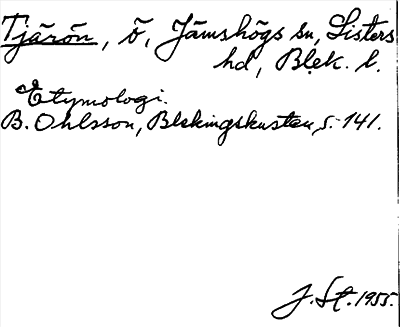 Tjärön, ö, Jämshögs sn, Listers
hd, Blek. l.
Etymologi.
B. Ohlsson, Blekingskusten, s. 141.
J. St. 1955.